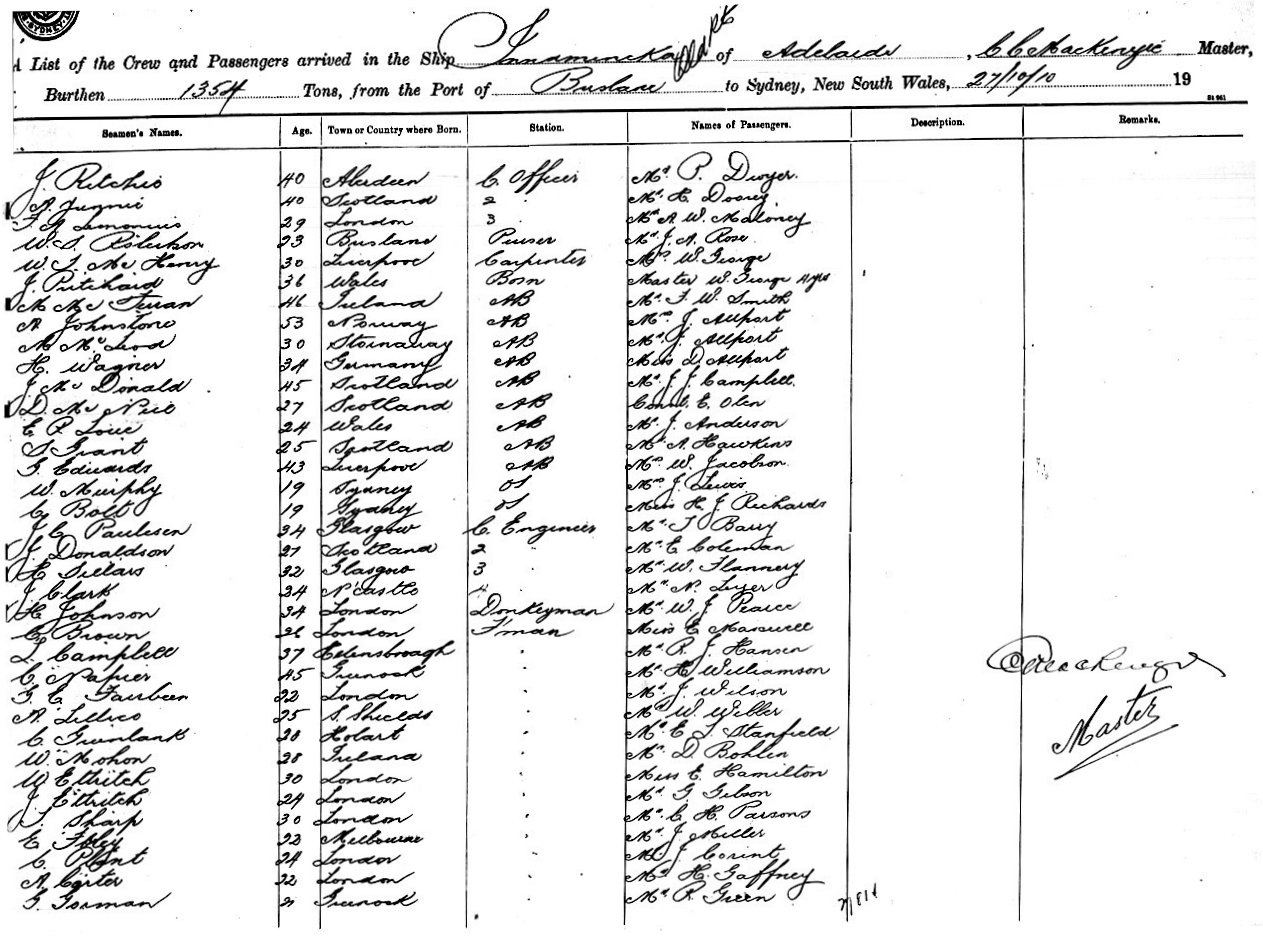 SYDNEY
A List of the Crew and Passengers arrived in the Ship Innamincka of Adelaide, C C MacKenzie Master,
Burthen 1354 Tons, from the Port of to Sydney, New South Wales, 27/10/10 19
Seamen's Names. Age. Town or Country where Born. Station. Names of Passengers. Description. Remarks.
J. Ritchie 40 Aberdeen C. Officer Mr. P. Dwyer.
A. 40 Scotland 2 Mr. H.
29 London 3 Mr. A. W. Maloney
W. S. 23 Purser Mr. J. A. Rose
W. J. Mc Henry 30 Liverpool Carpenter W. George
J. Pritchard 36 Wales Bosn Master W. George
M Mc 46 Ireland AB Mr. F. W. Smith
A. Johnstone 53 Norway AB J. Allport
M McLeod 30 AB J. Allport
H. Wagner 34 Germany AB Miss D. Allport
J. Mc Donald 45 Scotland AB Mr. J. J. Campbell.
D. Mc 27 Scotland AB E. Olen
E. P. 24 Wales AB Mr. J. Anderson
S Grant 25 Scotland AB Mr. A. Hawkins
G. Edwards 43 Liverpool AB W. Jacobson
W. Murphy 19 Sydney OS J. Lewis
C. Bolt 19 Sydney OS Miss H. J. Richards
J. C. Paulsen 34 Glasgow C. Engineer Mr. T. Barry
J. Donaldson 27 Scotland 2 Mr. E. Coleman
Sillars 32 Glasgow 3 Mr. W. Flannery
J. Clark 24 N'castle 4 Mr. N.
H. Johnson 34 London Donkeyman Mr. W. J. Pearce
C. Brown 26 London F'man Miss E.
L. Campbell 37 Helensboroagh " Mr. R. J. Hansen
C. Napier 45 Greenock " Mr. H. Williamson
G. C. 22 London " Mr. J. Wilson
A. Lillico 25 S. Shields " Mr. W. C C MacKenzie
C. 28 Hobart " Mr. E. J. Stanfield Master
W. Mohon 28 Ireland " Mr. D. Bohlen
W Ettritch 30 London " Miss E. Hamilton
J. Ettritch 24 London " Mr. G. Gibson
Sharp 30 London " Mr. C. H. Parsons
E. Foley 22 Melbourne " Mr. J. Miller
C. Plant 24 London " J. Corint
A. Carter 22 London " Mr. H. Gaffney
G. Gorman Greenock " Mr. R. Green